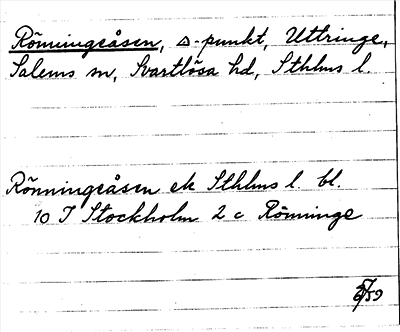 Rönningeåsen, Δ-punkt, Uttringe,
Salems sn, Svartlösa hd, Sthlms l.
Rönningeåsen ek Sthlms l. bl.
10 I Stockholm 2 c Rönninge